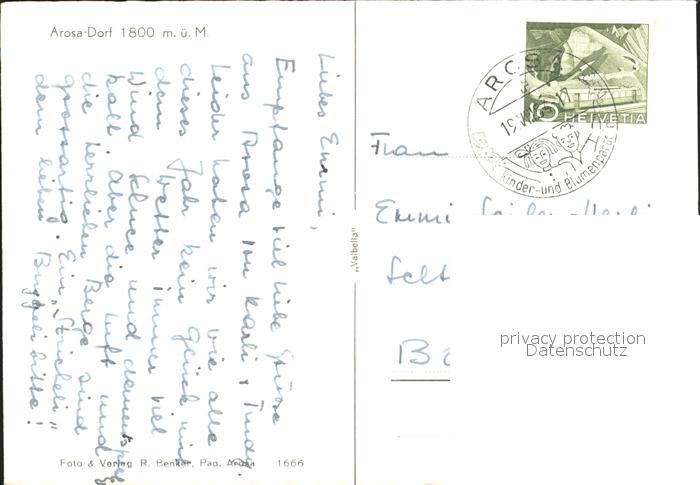 Arosa-Dorf 1800 m. ü. M.
Liebes Emmi,
Empfange viel liebe Grüsse
aus Arosa von Karli & Trudy.
Leider haben wir wie alle
dieses Jahr kein Glück mit
dem Wetter immer viel
Wind Schnee und dementspr.
kalt. Aber die Luft und
die herrlichen Berge sind
grossartig. Ein "Stricheli"
dem lieben Buggeli bitte!
Foto & Verlag R. Benker, Pap. Arosa 1666
„Valbella"
AROSA
Kinder-und Blumenparad
5
HELVETIA
Frau
Emmi
Selt
B
privacy protection
Datenschutz